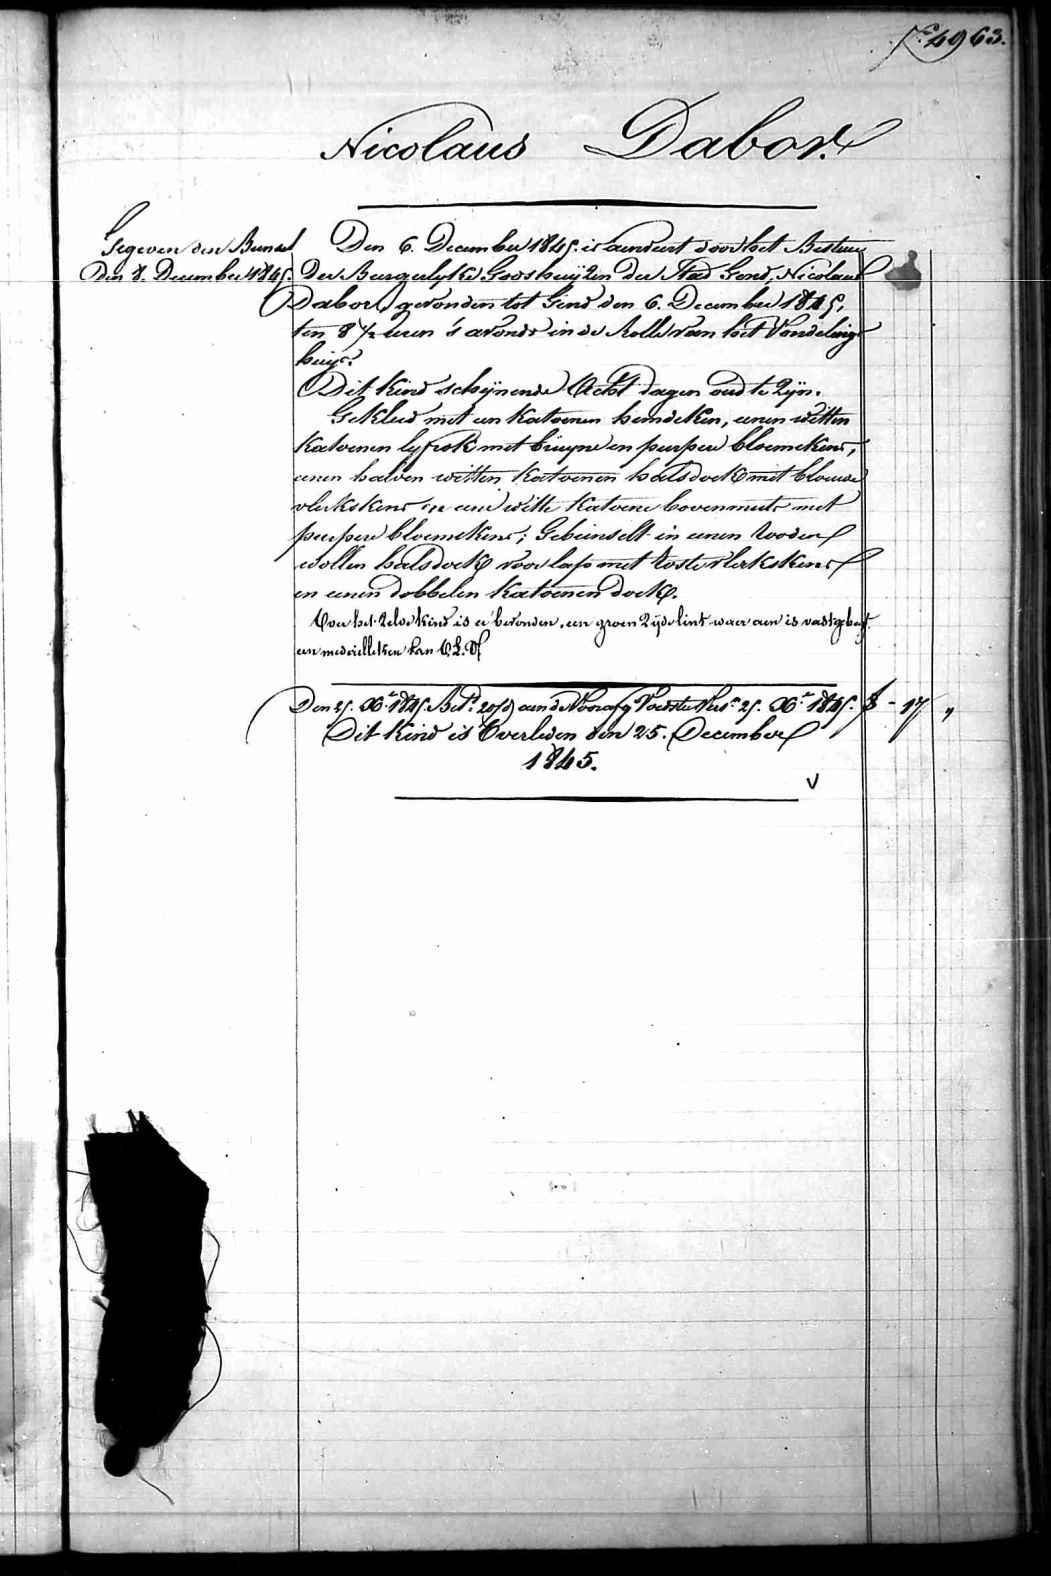 Nº 4963.
Nicolaus Dabor.
Gegeven den Bundel
den 8. December 1845.
Den 6. December 1845. is aenveirt door het Bestuur
der Burgerlyke Godshuijzen der Stad Gend, Nicolaus
Dabor, gevonden tot Gend den 6. December 1845,
ten 8 ½ uren 's avonds in de Rolle van het Vondeling
huijs.
Dit Kind schijnende Acht dagen oud te Zijn.
Gekleed met een Katoenen hemdeken, eenen witten
Katoenen lyfrok met bruyne en purpere bloemekens,
eenen halven witten Katoenen halsdoek met blauwe
vlekskens en eene witte Katoene bovenmuts met
purpere bloemekens; Gebunselt in eenen rooden
wollen halsdoek voor lap met roste vlekskens
en eenen dobbelen Katoenen doek.
Voor het zelve Kind is er bevonden, een groen Zijde lint waer aen is vastgehegt
een medaelleken van O.L.V.
Den 25. Xbr 1845. Bet. aen de Voedster 25. Xbr 1845. 8 - 17 "
Dit Kind is Overleden den 25. December
1845.
V